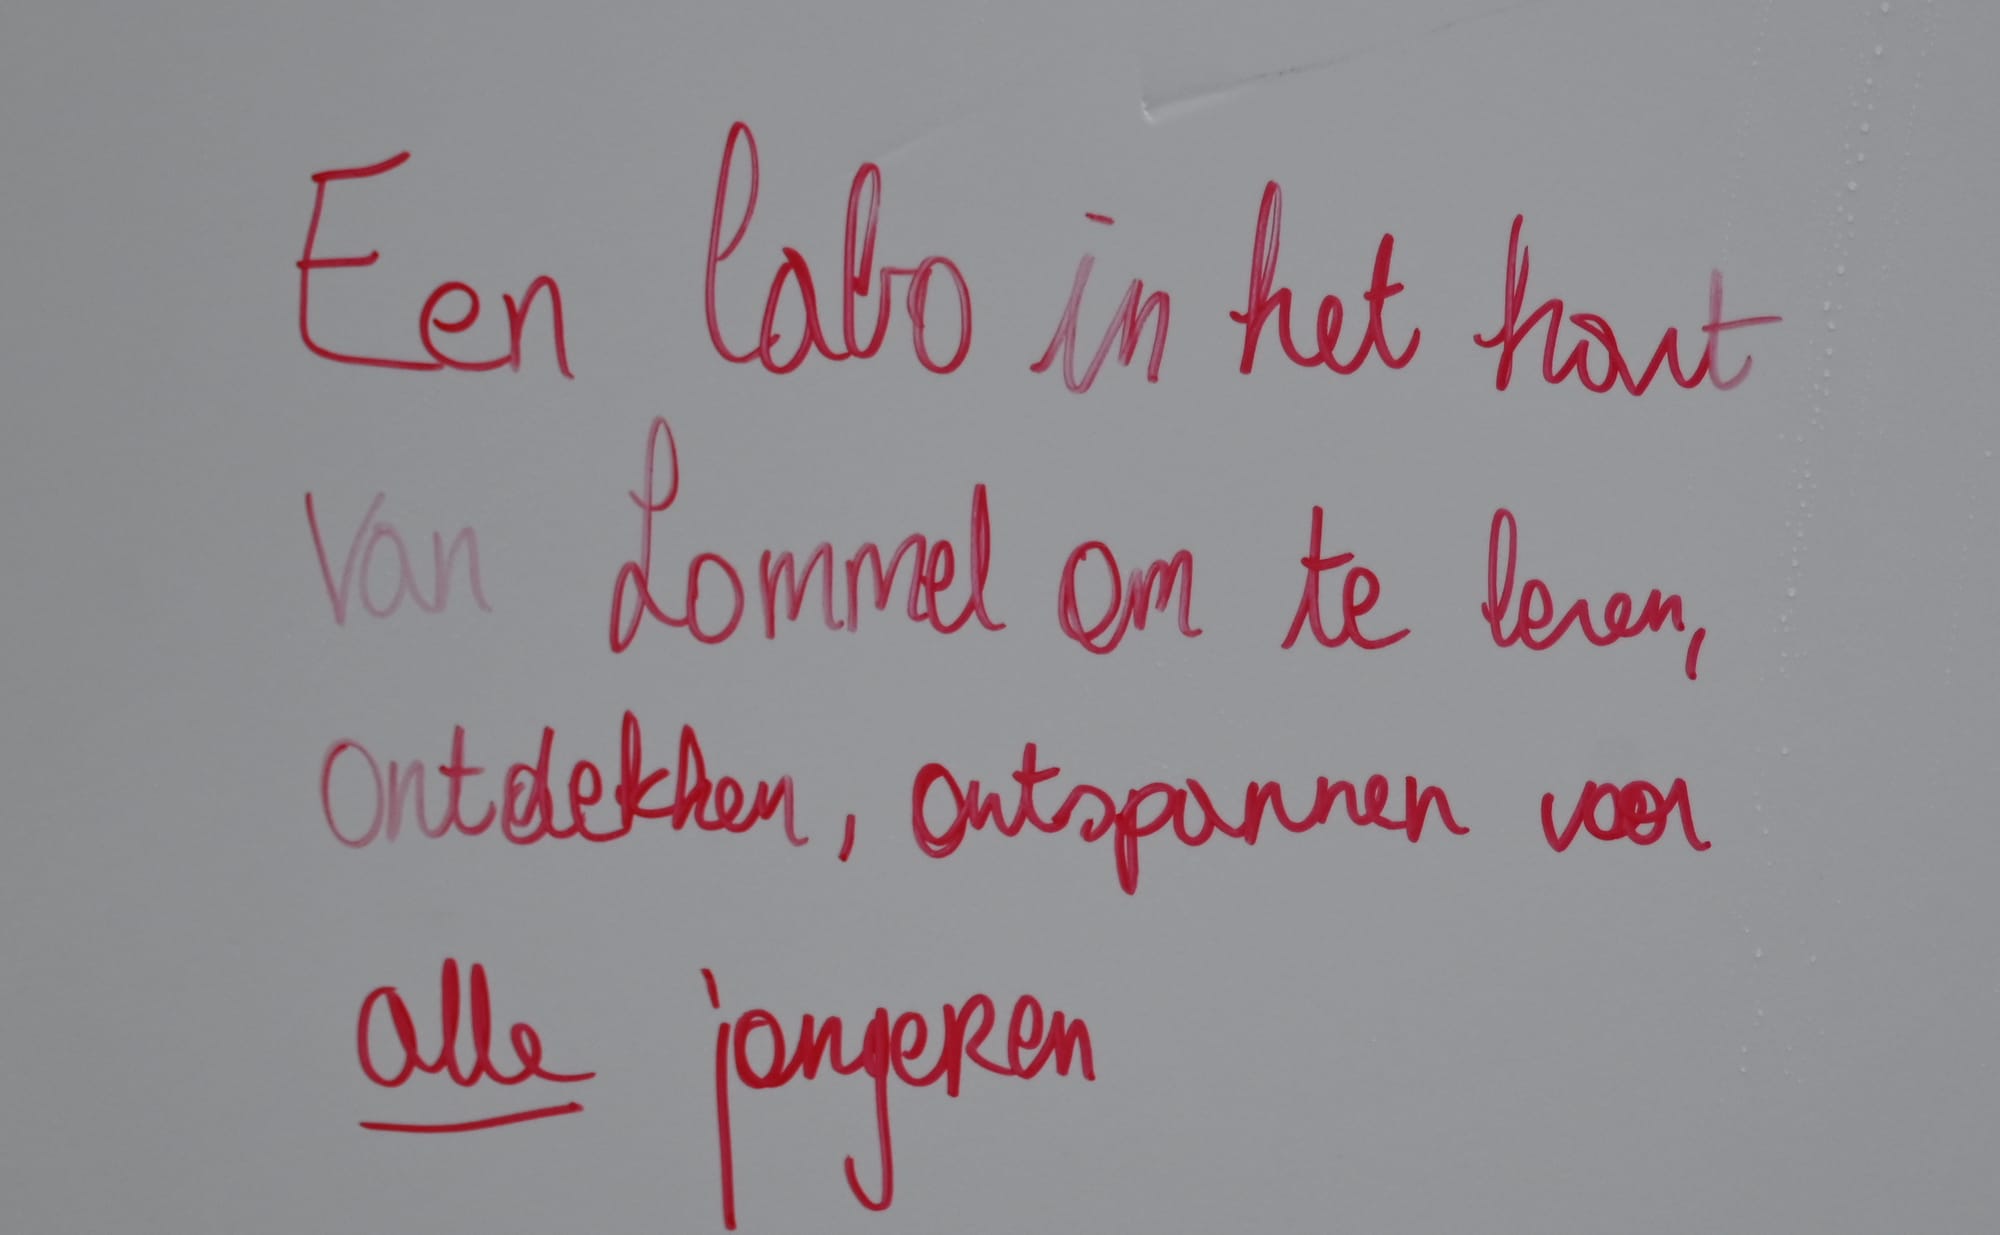 Een labo in het hart
Van Lommel om te leren,
Ontdekken, ontspannen voor
alle jongeren